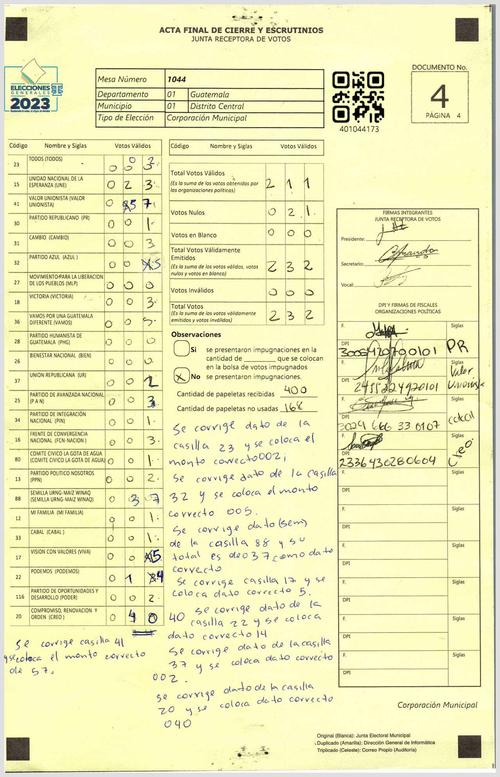 ACTA FINAL DE CIERRE Y ESCRUTINIOS
JUNTA RECEPTORA DE VOTOS
ELECCIONES
GENERALES
2023
Mesa Número 1044
Departamento 01 Guatemala
Municipio 01 Distrito Central
Tipo de Elección Corporación Municipal
401044173
DOCUMENTO No.
4
PÁGINA 4
Código Nombre y Siglas Votos Válidos
23 TODOS (TODOS)
15 UNIDAD NACIONAL DE LA ESPERANZA (UNE) 0 2 3
41 VALOR UNIONISTA (VALOR UNIONISTA)
30 PARTIDO REPUBLICANO (PR) 0 0 1
31 CAMBIO (CAMBIO) 0 0 3
32 PARTIDO AZUL (AZUL)
27 MOVIMIENTO PARA LA LIBERACION DE LOS PUEBLOS (MLP) 0 0 0
18 VICTORIA (VICTORIA) 0 0 3
36 VAMOS POR UNA GUATEMALA DIFERENTE (VAMOS) 0 0 5
28 PARTIDO HUMANISTA DE GUATEMALA (PHG) 0 0 0
26 BIENESTAR NACIONAL (BIEN) 0 0 0
37 UNION REPUBLICANA (UR) 0 0 2
25 PARTIDO DE AVANZADA NACIONAL (P A N) 0 0 3
34 PARTIDO DE INTEGRACIÓN NACIONAL (PIN) 0 0 1
16 FRENTE DE CONVERGENCIA NACIONAL (FCN-NACION) 0 0 3
80 COMITE CIVICO LA GOTA DE AGUA (COMITE CIVICO LA GOTA DE AGUA) 0 0 1
13 PARTIDO POLITICO NOSOTROS (PPN) 0 0 2
88 SEMILLA URNG-MAIZ WINAQ (SEMILLA URNG-MAIZ WINAQ) 0 3 7
12 MI FAMILIA (MI FAMILIA) 0 0 1
33 CABAL (CABAL) 0 0 1
17 VISION CON VALORES (VIVA)
22 PODEMOS (PODEMOS)
116 PARTIDO DE OPORTUNIDADES Y DESARROLLO (PODER) 0 0 2
20 COMPROMISO, RENOVACION Y ORDEN (CREO) 0 4 0
se corrige casilla 41
y se coloca el monto correcto
de 57.
Código Nombre y Siglas Votos Válidos
Total Votos Válidos 2 1 1
(Es la suma de los votos obtenidos por las organizaciones políticas)
Votos Nulos 0 2 1
Votos en Blanco 0 0 0
Total Votos Válidamente Emitidos 2 3 2
(Es la suma de los votos válidos, votos nulos y votos en blanco)
Votos Inválidos 0 0 0
Total Votos 2 3 2
(Es la suma de votos válidamente emitidos y votos inválidos)
Observaciones
Si se presentaron impugnaciones en la
cantidad de que se colocan
en la bolsa de votos impugnados
X No se presentaron impugnaciones.
Cantidad de papeletas recibidas 400
Cantidad de papeletas no usadas 168
Se corrige dato de la
casilla 23 y se coloca el
monto correcto 002,
se corrige dato de la casilla
32 y se coloca el monto
correcto 005.
Se corrige dato (sem)
de la casilla 88 y su
total es de 037 como dato
correcto
Se corrige casilla 17 y se
coloca dato correcto 5.
40 se corrige dato de la
casilla 22 y se coloca
dato correcto 14
Se corrige dato de la casilla
37 y se coloca dato correcto
002.
se corrige dato de la casilla
20 y se coloca dato correcto
040
FIRMAS INTEGRANTES
JUNTA RECEPTORA DE VOTOS
Presidente:
Secretario:
Vocal:
DPI Y FIRMAS DE FISCALES
ORGANIZACIONES POLÍTICAS
F. Siglas
DPI PR
F. Siglas
DPI Valor
F. Siglas
DPI cabal
F. Siglas
DPI 2336430280604 Creo
F. Siglas
DPI
F. Siglas
DPI
F. Siglas
DPI
F. Siglas
DPI
F. Siglas
DPI
F. Siglas
DPI
Corporación Municipal
Original (Blanca): Junta Electoral Municipal
Duplicado (Amarilla): Dirección General de Informática
Triplicado (Celeste): Correo Propio (Auditoría)